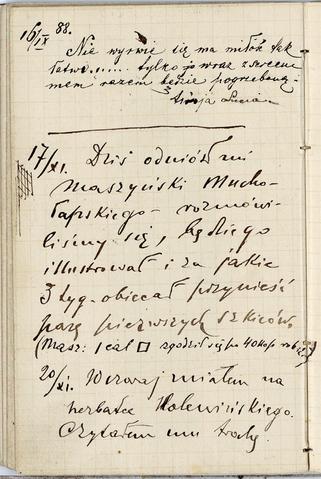 16/IX 88.
Nie wyrwie się ma miłość tak
łatwo..... tylko ją wraz z sercem
mem razem będzie pogrzebaną.
Łucja
17/XI. Dziś odniósł mi
Maszyński Mucho-
łapskiego - rozmówi-
liśmy się, będzie go
illustrował i za jakie
3 tyg. obiecał przynieść
parę pierwszych szkiców.
(Masz: 1 cal □ zgodził się po 40 kop.
20/XI. Wczoraj miałem na
herbatce Holewińskiego.
Czytałem mu trochę.